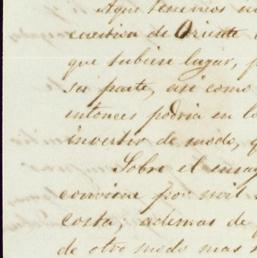 Aqui tenemos
cuestion de Oriente
que tubiese lugar,
su parte, asi como
entonces podria en lo
invertir de modo, q
Sobre el
conviene por mil
costa; ademas de
de otro modo mas